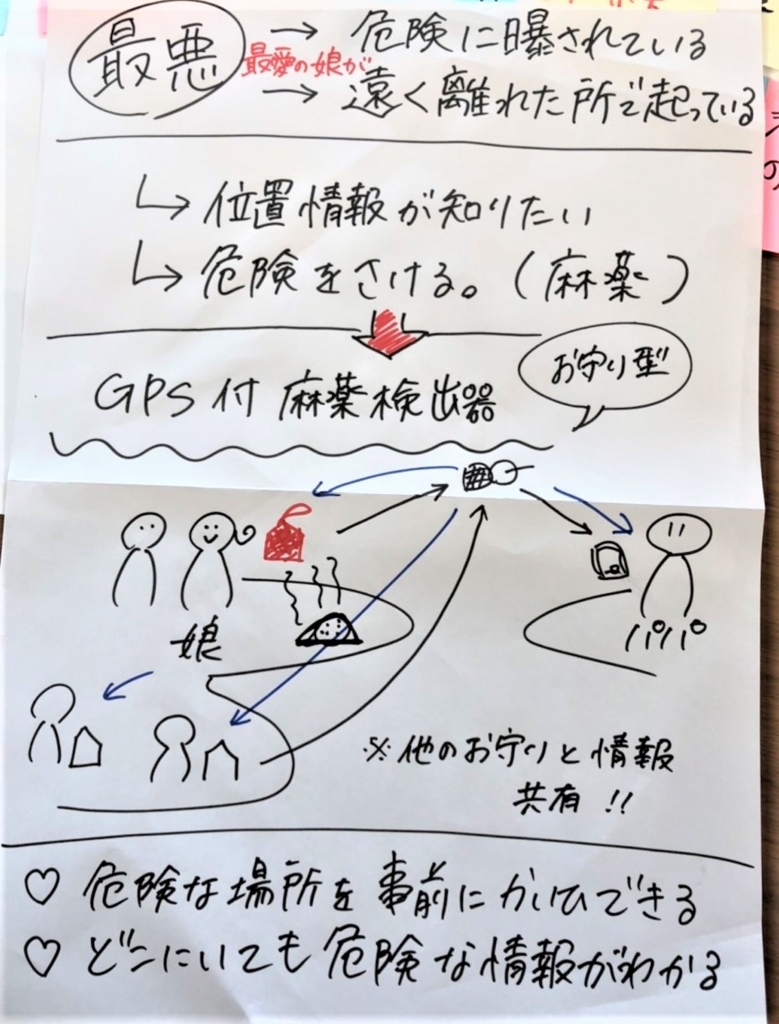 最悪 → 危険に曝されている
最愛の娘が
→ 遠く離れた所で起っている
↳ 位置情報が知りたい
↳ 危険をさける。(麻薬)
お守り型
GPS付 麻薬検出器
娘
パパ
※他のお守りと情報
共有 !!
♡ 危険な場所を事前にかいひできる
♡ どこにいても危険な情報がわかる